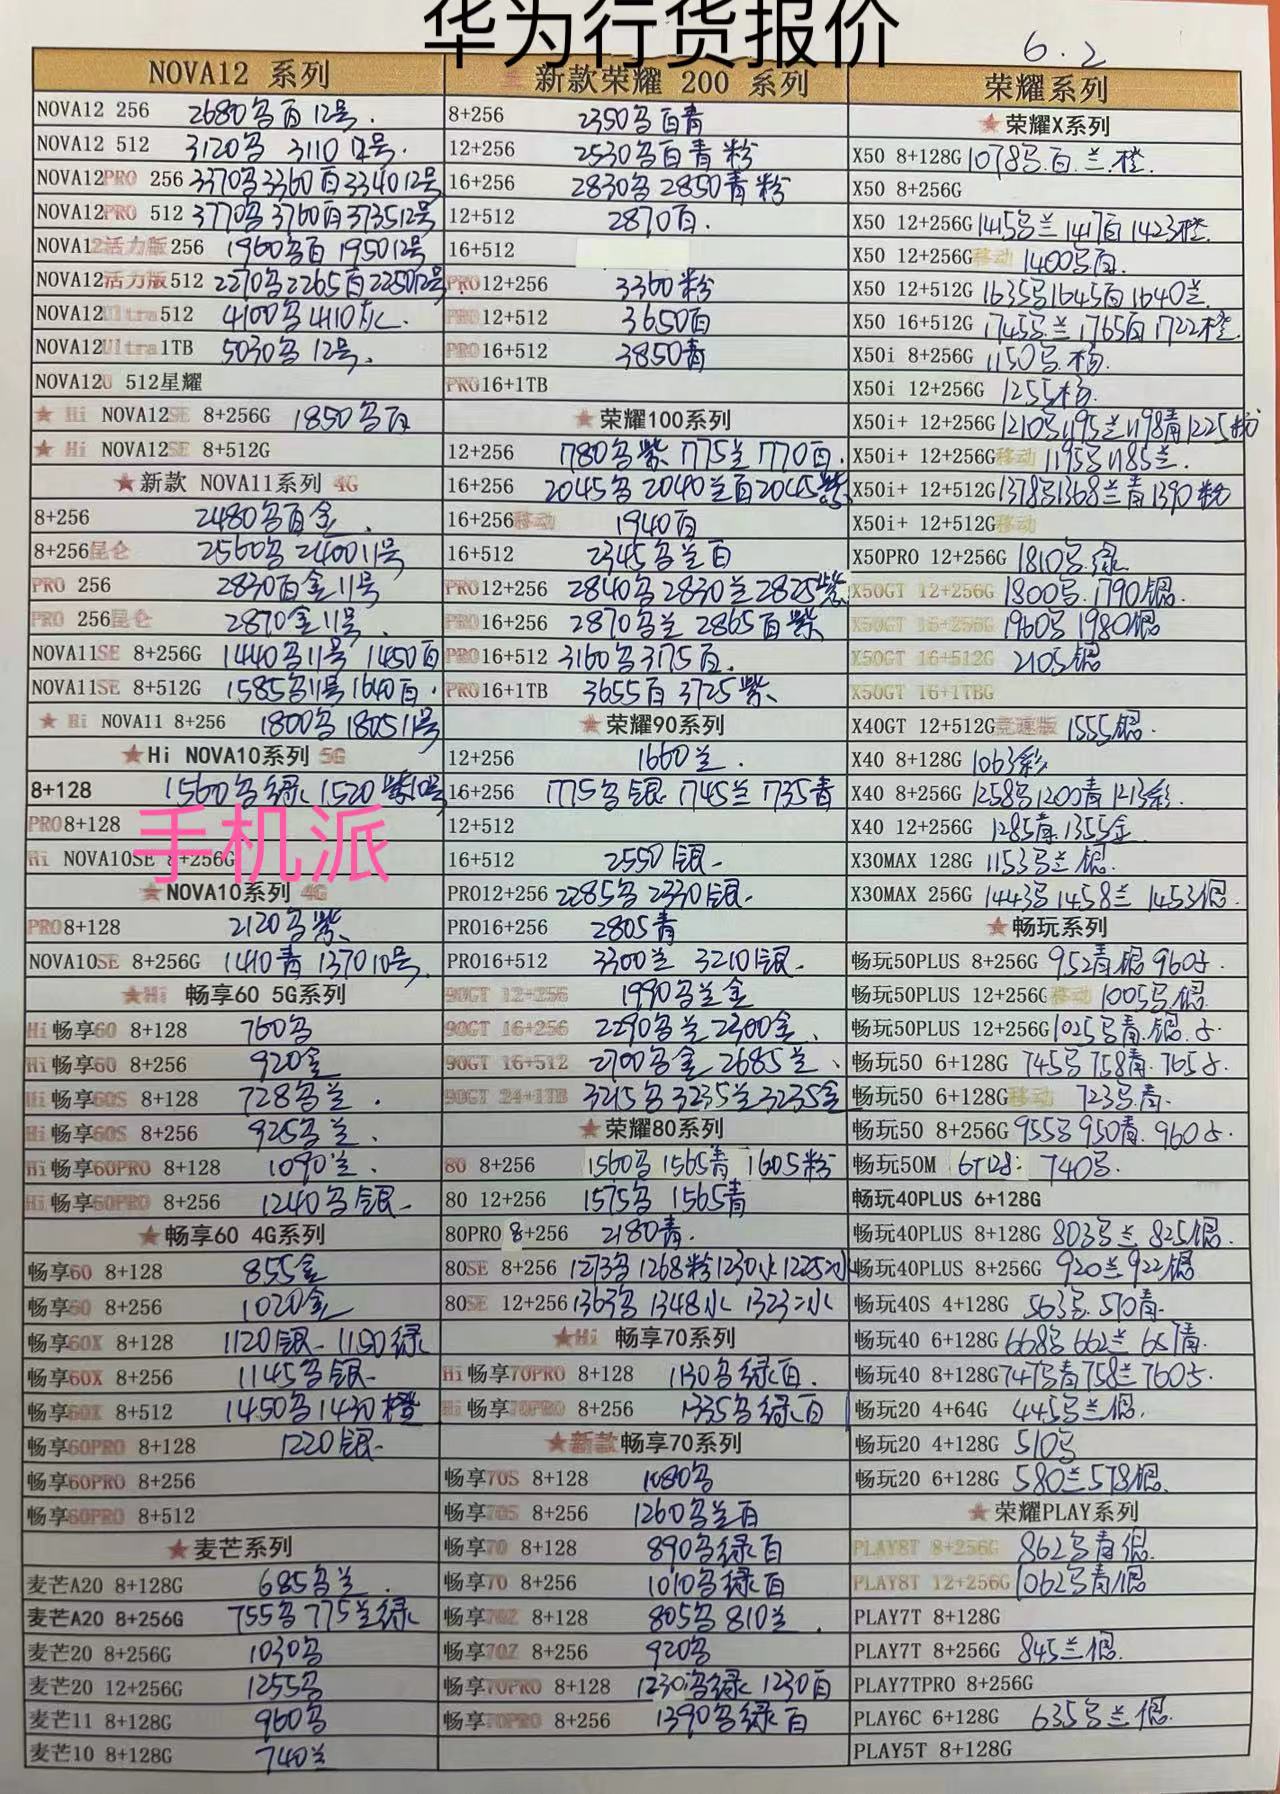 华为行货报价
6.2
NOVA12 系列
NOVA12 256 2680乌百12号.
NOVA12 512 3120乌 3110 12号.
NOVA12PRO 256 3370乌3360百3340 12号
NOVA12PRO 512 3770乌3760百3735 12号
NOVA12活力版256 1960乌百 1950 12号
NOVA12活力版512 2270乌2265百2250 12号
NOVA12Ultra512 4100乌4110灰.
NOVA12Ultra1TB 5030乌12号.
NOVA12U 512星耀
★ Hi NOVA12SE 8+256G 1850乌百
★ Hi NOVA12SE 8+512G
★新款 NOVA11系列 4G
8+256 2480乌百金.
8+256昆仑 2560乌2400 11号
PRO 256 2830百金11号
PRO 256昆仑 2870金11号.
NOVA11SE 8+256G 1440乌11号 1450百
NOVA11SE 8+512G 1585乌11号1640百.
★ Hi NOVA11 8+256 1800乌1805 11号
★Hi NOVA10系列 5G
8+128 1560乌绿 1520紫10号
PRO8+128
手机派
Hi NOVA10SE 8+256G
★NOVA10系列 4G
PRO8+128 2120乌紫
NOVA10SE 8+256G 1410青 1370 10号.
★Hi 畅享60 5G系列
Hi畅享60 8+128 760乌
Hi畅享60 8+256 920金
Hi畅享60S 8+128 728乌兰.
Hi畅享60S 8+256 925乌兰.
Hi畅享60PRO 8+128 1090兰.
Hi畅享60PRO 8+256 1240乌银.
★畅享60 4G系列
畅享60 8+128 855金
畅享60 8+256 1020金
畅享60X 8+128 1120银 1150绿
畅享60X 8+256 1145乌银
畅享60X 8+512 1450乌1430橙
畅享60PRO 8+128 1220银
畅享60PRO 8+256
畅享60PRO 8+512
★麦芒系列
麦芒A20 8+128G 685乌兰.
麦芒A20 8+256G 755乌775兰绿
麦芒20 8+256G 1030乌
麦芒20 12+256G 1255乌
麦芒11 8+128G 960乌
麦芒10 8+128G 740兰
新款荣耀 200 系列
8+256 2350乌百青
12+256 2530乌百青粉
16+256 2830乌2850青粉
12+512 2870百.
16+512
PRO12+256 3360粉
PRO12+512 3650百
PRO16+512 3850青
PRO16+1TB
★荣耀100系列
12+256 1780乌紫 1775兰 1770百.
16+256 2045乌2040兰百2045紫
16+256移动 1940百
16+512 2345乌兰百
PRO12+256 2840乌2830兰2825紫
PRO16+256 2870乌兰 2865百紫
PRO16+512 3160乌3175百.
PRO16+1TB 3655百3725紫
★荣耀90系列
12+256 1660兰.
16+256 1775乌银 1745兰 1735青
12+512
16+512 2550银
PRO12+256 2285乌2330银
PRO16+256 2805青
PRO16+512 3300兰 3210银
90GT 12+256 1990乌兰金
90GT 16+256 2290乌兰2300金.
90GT 16+512 2700乌金2685兰.
90GT 24+1TB 3215乌3235兰3235金
★荣耀80系列
80 8+256 1560乌1565青 1605粉
80 12+256 1575乌 1565青
80PRO 8+256 2180青.
80SE 8+256 1273乌1268粉1230水1225冰
80SE 12+256 1363乌 1348水 1323冰
★Hi 畅享70系列
Hi畅享70PRO 8+128 1130乌绿百.
Hi畅享70PRO 8+256 1335乌绿百
★新款畅享70系列
畅享70S 8+128 1080乌
畅享70S 8+256 1260乌兰百
畅享70 8+128 890乌绿百
畅享70 8+256 1010乌绿百
畅享70Z 8+128 805乌810兰.
畅享70Z 8+256 920乌
畅享70PRO 8+128 1230乌绿 1230百
畅享70PRO 8+256 1390乌绿百
荣耀系列
★荣耀X系列
X50 8+128G 1078乌.百.兰.橙.
X50 8+256G
X50 12+256G 1415乌兰1417百1423橙.
X50 12+256G移动 1400乌百.
X50 12+512G 1635乌1645百1640兰.
X50 16+512G 1745乌.兰1765百1722橙.
X50i 8+256G 1150乌.粉.
X50i 12+256G 1255粉.
X50i+ 12+256G 1210乌1195兰1198青1225粉
X50i+ 12+256G移动 1195乌1185兰.
X50i+ 12+512G 1378乌1368兰青1390粉
X50i+ 12+512G移动
X50PRO 12+256G 1810乌.绿
X50GT 12+256G 1800乌.1790银.
X50GT 16+256G 1960乌 1980银
X50GT 16+512G 2105银
X50GT 16+1TBG
X40GT 12+512G竞速版 1555银.
X40 8+128G 1063彩
X40 8+256G 1258乌1200青1213彩.
X40 12+256G 1285青.1355金
X30MAX 128G 1153乌兰银.
X30MAX 256G 1443乌1458兰 1453银.
★畅玩系列
畅玩50PLUS 8+256G 952青银960
畅玩50PLUS 12+256G移动 1005乌银
畅玩50PLUS 12+256G 1025乌青.银.
畅玩50 6+128G 745乌758青.765
畅玩50 6+128G移动 723乌.青.
畅玩50 8+256G 955乌950青.960
畅玩50M 6+128: 740乌.
畅玩40PLUS 6+128G
畅玩40PLUS 8+128G 803乌兰825银.
畅玩40PLUS 8+256G 920兰922银
畅玩40S 4+128G 563乌.570青.
畅玩40 6+128G 668乌662兰657青.
畅玩40 8+128G 747乌青758兰760
畅玩20 4+64G 445乌兰银.
畅玩20 4+128G 510乌
畅玩20 6+128G 580兰578银.
★荣耀PLAY系列
PLAY8T 8+256G 862乌青银.
PLAY8T 12+256G 1062乌青银
PLAY7T 8+128G
PLAY7T 8+256G 845兰银.
PLAY7TPRO 8+256G
PLAY6C 6+128G 635乌兰银.
PLAY5T 8+128G